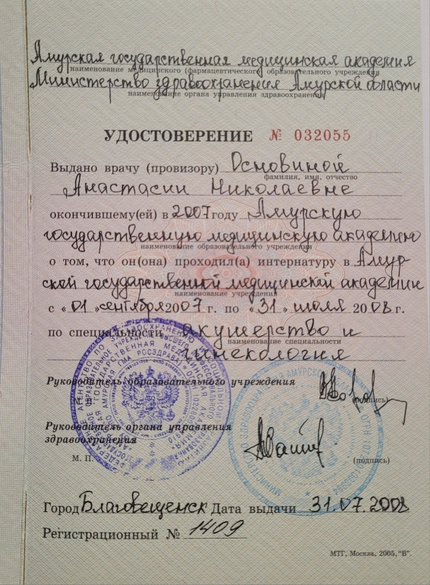 Амурская государственная медицинская академия
наименование медицинского (фармацевтического) образовательного учреждения
Министерство здравоохранения Амурской области
наименование органа управления здравоохранением
УДОСТОВЕРЕНИЕ № 032055
Выдано врачу (провизору) Основиной
фамилия, имя, отчество
Анастасии Николаевне
окончившему(ей) в 2007 году Амурскую
государственную медицинскую академию
наименование образовательного учреждения
о том, что он(она) проходил(а) интернатуру в Амур
ской государственной медицинской академии
наименование учреждения
с «01» сентября 2007 г. по «31» июля 2008 г.
по специальности акушерство и
наименование специальности
гинекология
Руководитель образовательного учреждения
(подпись)
Руководитель органа управления
здравоохранения
М. П.
(подпись)
Город Благовещенск Дата выдачи 31.07.2008
Регистрационный № 1409
МТГ, Москва, 2005, "В".